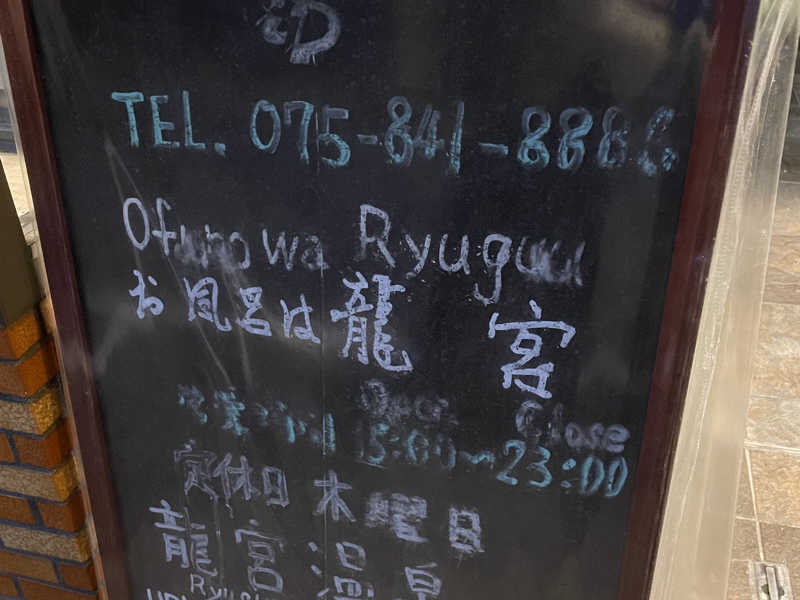 iD
TEL. 075-841-8888
Ofurowa Ryuguu
お風呂は龍宮
Open Close
営業時間 15:00〜23:00
定休日 木曜日
龍宮温泉